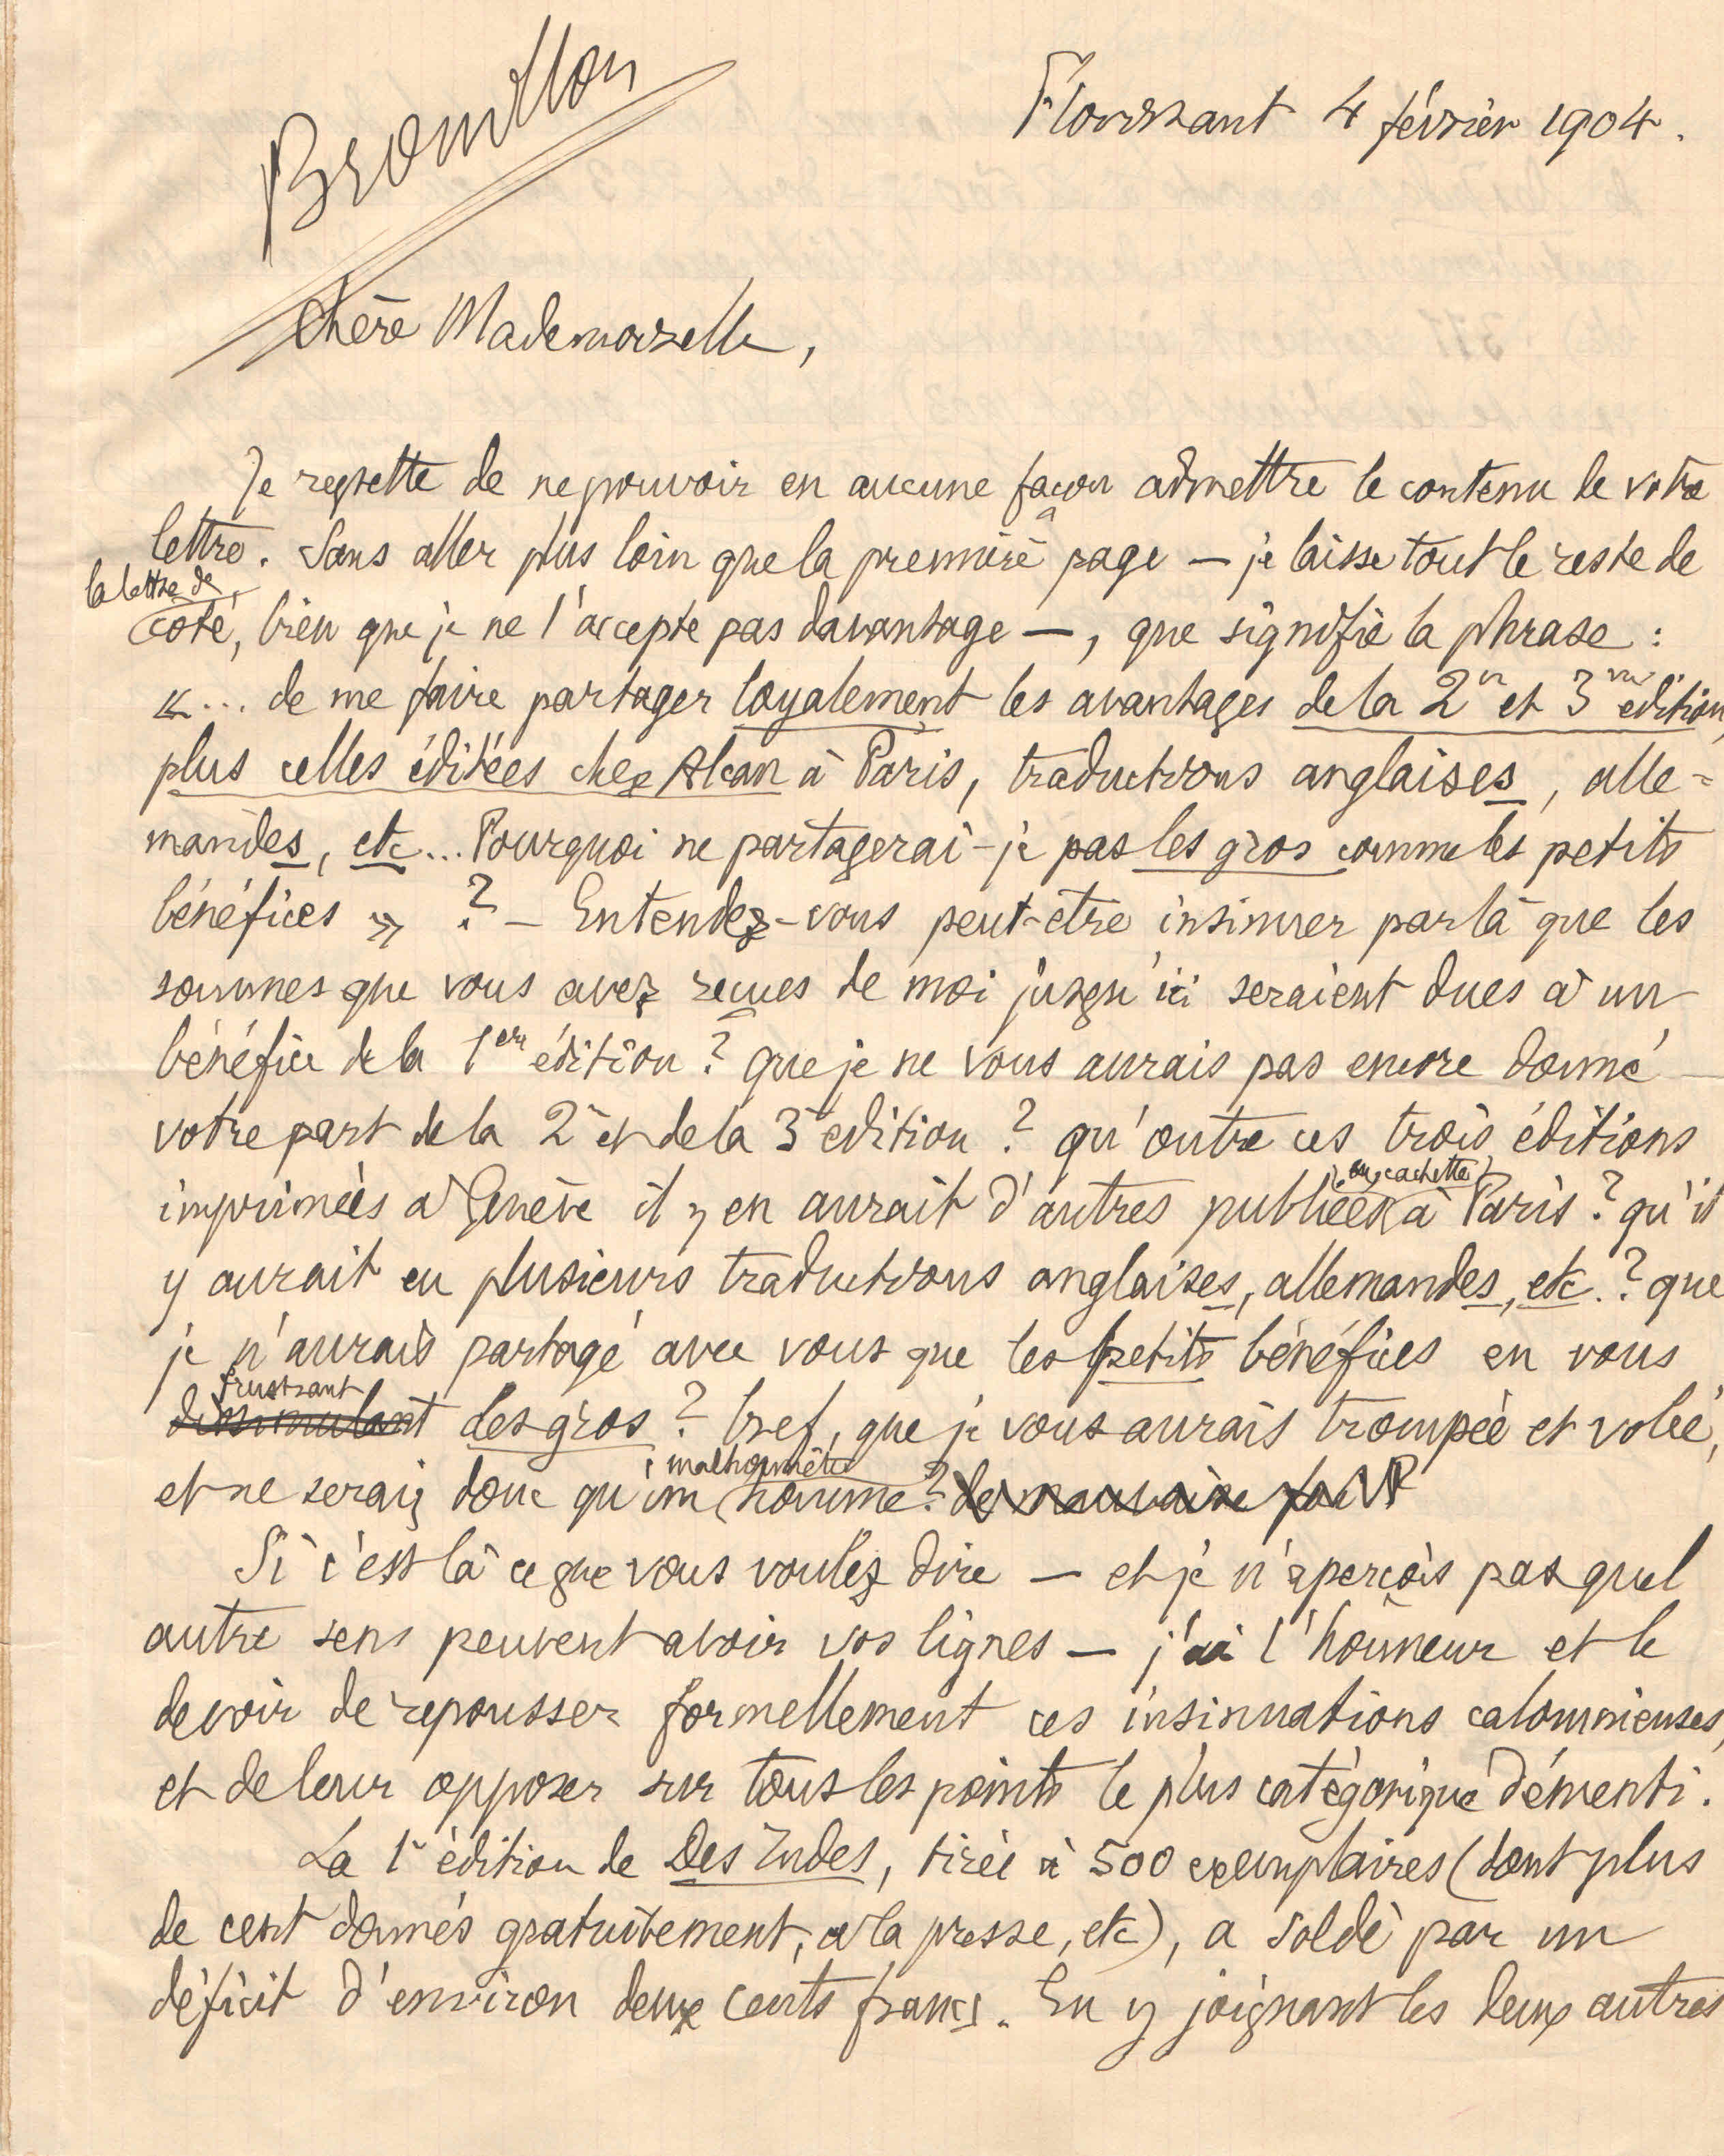 Brouillon
Florissant 4 février 1904.
Chère Mademoiselle,
Je regrette de ne pouvoir en aucune façon admettre le contenu de votre
lettre. Sans aller plus loin que la première page — je laisse tout le reste de
la lettre de
côté, bien que je ne l'accepte pas davantage —, que signifie la phrase :
«... de me faire partager loyalement les avantages de la 2me et 3me édition,
plus celles éditées chez Alcan à Paris, traductions anglaises, alle=
mandes, etc... Pourquoi ne partagerai-je pas les gros comme les petits
bénéfices » ? — Entendez-vous peut-être insinuer par là que les
sommes que vous avez reçues de moi jusqu'ici seraient dues à un
bénéfice de la 1ère édition ? que je ne vous aurais pas encore donné
votre part de la 2e et de la 3e édition ? qu'outre ces trois éditions
en cachette
imprimées à Genève il y en aurait d'autres publiées à Paris ? qu'il
y aurait eu plusieurs traductions anglaises, allemandes, etc. ? que
je n'aurais partagé avec vous que les petits bénéfices en vous
frustrant
dissimulant des gros ? bref, que je vous aurais trompée et volée,
malhonnête
et ne serais donc qu'un homme ? de mauvaise foi ?
Si c'est là ce que vous voulez dire — et je n'aperçois pas quel
autre sens peuvent avoir vos lignes — j'ai l'honneur et le
devoir de repousser formellement ces insinuations calomnieuses,
et de leur opposer sur tous les points le plus catégorique démenti.
La 1e édition de Des Indes, tirée à 500 exemplaires (dont plus
de cent donnés gratuitement, à la presse, etc), a soldé par un
déficit d'environ deux cents francs. En y joignant les deux autres